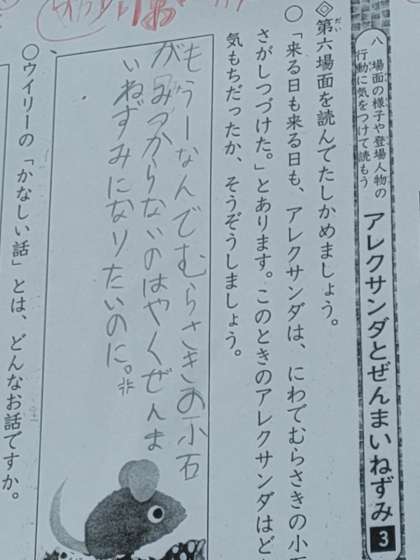 八 場面の様子や登場人物の
行動に気をつけて読もう
アレクサンダとぜんまいねずみ 3
◇第六場面を読んでたしかめましょう。
○「来る日も来る日も、アレクサンダは、にわでむらさきの小石
さがしつづけた。」とあります。このときのアレクサンダはど
気もちだったか、そうぞうしましょう。
もうーなんでむらさきの小石
がみつからないのはやくぜんま
いねずみになりたいのに。
○ウイリーの「かなしい話」とは、どんなお話ですか。